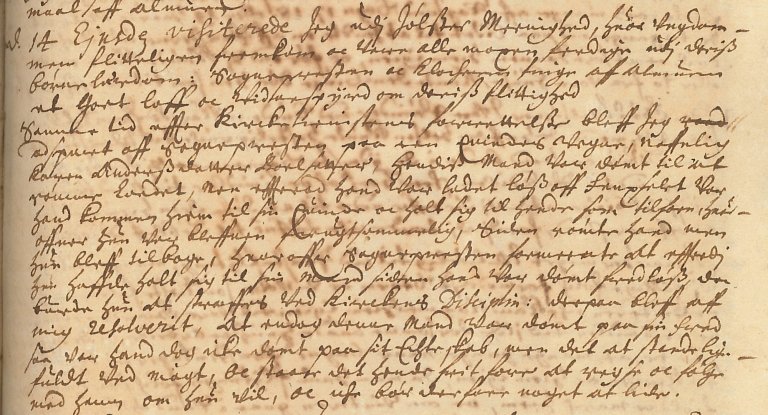 maal aff Almuen.
d. 14 Ejusde visiterede Jeg udj Jølster Meenighed, huor Ungdom-
men flitteligen fremkom oc vare alle maxen ferdige udj deris
børnelærdom: Sognepresten oc Klocheren finge aff Almuen
et Gott loff oc vidnesbyrd om deris flittighed
Samme tid effter Kirchetienistens forrettelse bleff Jeg
adspurt aff Sognepresten paa een Quindes vegne, neffnlig
Karen Andersdatter, hendis Mand var dømt til at
rømme Landet, Men effterat hand var ladet løs aff Lenssfelet var
hand kommen hiem til sin Quinde oc holt sig til hende som tilforn, huor-
offuer hun var bleffuen frugtsommelig, Siden rømte hand men
hun bleff tilbage, huorofver Sognepresten formeente at efftersom
hun haffde holt sig til sin Mand siden hand var dømt fredløs, da
burde hun at straffes ved Kirckens Disciplin: derpaa bleff aff
mig resolverit, At endog denne Mand var dømt paa sin fred
saa var hand dog icke dømt paa sit Echteskab, men det at stande lige-
fuldt ved magt, Oc staar det hende frit fore at reyse oc følge
med ham om hun vil, oc icke bør derfore noget at lide.